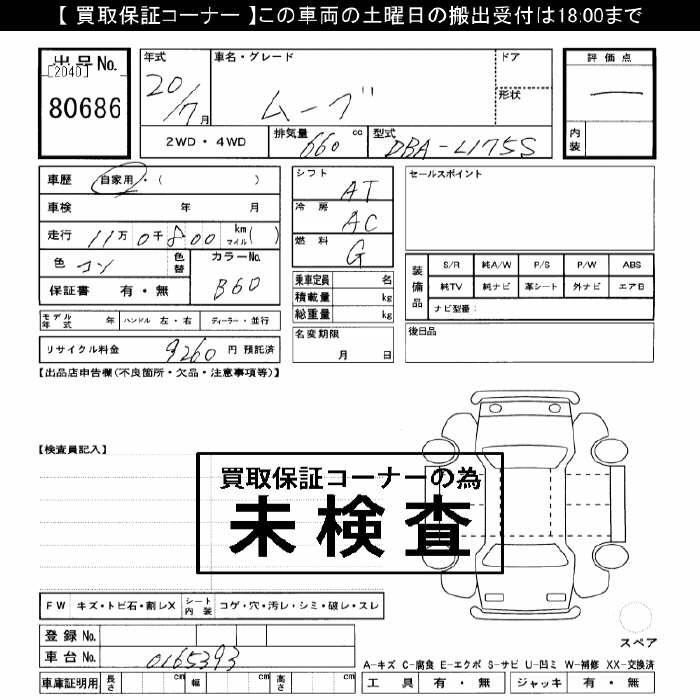 【 買取保証コーナー 】この車両の土曜日の搬出受付は18:00まで
出品No.
[2040]
80686
年式
20/7月
車名・グレード
ムーブ
ドア
形状
評価点
内装
2WD・4WD
排気量 660 cc
型式 DBA-L175S
車歴 自家用・( )
車検 年 月
走行 11万0千800 km マイル( )
色 コン
色替
カラーNo.
B60
保証書 有・無
シフト AT
冷房 AC
燃料 G
乗車定員 名
積載量 kg
総重量 kg
名変期限
月 日
セールスポイント
装備品
S/R 純A/W P/S P/W ABS
純TV 純ナビ 革シート 外ナビ エアB
ナビ型番:
後日品
モデル年式 年
ハンドル 左・右
ディーラー・並行
リサイクル料金 9260 円 預託済
【出品店申告欄(不良箇所・欠品・注意事項等)】
【検査員記入】
買取保証コーナーの為
未検査
FW キズ・トビ石・割レX
シート内装 コゲ・穴・汚レ・シミ・破レ・スレ
登録No.
車台No. 0165393
車庫証明用 長さ cm 幅 cm 高さ cm
スペア
A-キズ C-腐食 E-エクボ S-サビ U-凹ミ W-補修 XX-交換済
工具 有・無 ジャッキ 有・無